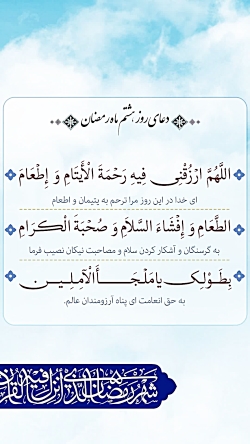 دعای روز هشتم ماه رمضان
اللَّهُمَّ ارْزُقْنِی فِیهِ رَحْمَةَ الْأَیْتَامِ وَ إِطْعَامَ
ای خدا در این روز مرا ترحم به یتیمان و اطعام
الطَّعَامِ وَ إِفْشَاءَ السَّلاَمِ وَ صُحْبَةَ الْکِرَامِ
به گرسنگان و آشکار کردن سلام و مصاحبت نیکان نصیب فرما
بِطَوْلِکَ یَا مَلْجَأَ الْآمِلِینَ
به حق انعامت ای پناه آرزومندان عالم.
شَهْرُ رَمَضَانَ الَّذِی أُنْزِلَ فِیهِ